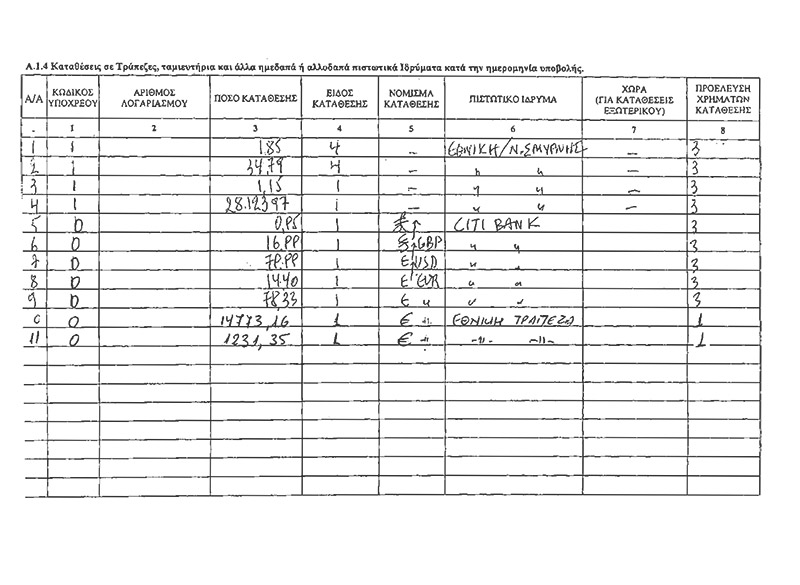 Α.1.4 Καταθέσεις σε Τράπεζες, ταμιευτήρια και άλλα ημεδαπά ή αλλοδαπά πιστωτικά Ιδρύματα κατά την ημερομηνία υποβολής.
Α/Α ΚΩΔΙΚΟΣ ΥΠΟΧΡΕΟΥ ΑΡΙΘΜΟΣ ΛΟΓΑΡΙΑΣΜΟΥ ΠΟΣΟ ΚΑΤΑΘΕΣΗΣ ΕΙΔΟΣ ΚΑΤΑΘΕΣΗΣ ΝΟΜΙΣΜΑ ΚΑΤΑΘΕΣΗΣ ΠΙΣΤΩΤΙΚΟ ΙΔΡΥΜΑ ΧΩΡΑ (ΓΙΑ ΚΑΤΑΘΕΣΕΙΣ ΕΞΩΤΕΡΙΚΟΥ) ΠΡΟΕΛΕΥΣΗ ΧΡΗΜΑΤΩΝ ΚΑΤΑΘΕΣΗΣ
. 1 2 3 4 5 6 7 8
1 1 1,85 4 – ΕΘΝΙΚΗ/Ν.ΣΜΥΡΝΗΣ – 3
2 1 34,79 4 – " " – 3
3 1 1,15 1 – " " – 3
4 1 28.123,97 1 – " " – 3
5 0 1 CITI BANK 3
6 0 1 GBP " " 3
7 0 1 USD " " 3
8 0 14,40 1 € EUR " " 3
9 0 78,33 1 € " " " 3
0 0 14773,16 1 € -"- ΕΘΝΙΚΗ ΤΡΑΠΕΖΑ 1
11 0 1231,35 1 € -"- -"- -"- 1